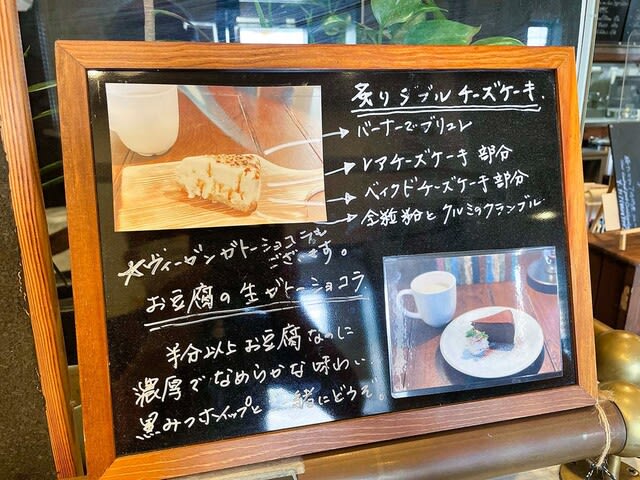 炙りダブルチーズケーキ.
バーナーでブリュレ
レアチーズケーキ部分
ベイクドチーズケーキ部分
全粒粉とクルミのクランブル
*ヴィーガンガトーショコラも
ございます。
お豆腐の生ガトーショコラ
半分以上お豆腐なのに
濃厚でなめらかな味わい.
黒みつホイップと 緒にどうぞ。